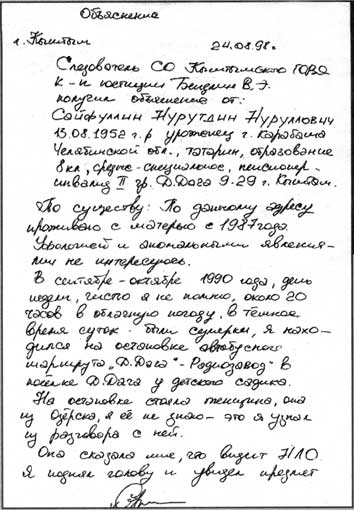 Объяснение
г. Кыштым 24.08.98г.
Следователь СО Кыштымского ГОВД
к-н юстиции Бендлин В.Э.
получил объяснение от:
Сайфуллин Нурутдин Нуруллович
15.08.1952 г.р уроженец г. Карабаша
Челябинской обл., татарин, образование
8 кл, средне-специальное, пенсионер.
инвалид II гр. Д.Дача 9-29 г. Кыштым.
По существу: По данному адресу
проживаю с матерью с 1987 года.
Уфологией и аномальными явления-
ми не интересуюсь.
В сентябре-октябре 1990 года, день
недели, число я не помню, около 20
часов в облачную погоду, в тёмное
время суток были сумерки, я нахо-
дился на остановке автобусного
маршрута „Д.Дача" - Радиозавод" в
посёлке Д.Дача у детского садика.
На остановке стояла женщина, она
из Озёрска, я её не знаю - это я узнал
из разговора с ней.
Она сказала мне, что видит НЛО.
Я поднял голову и увидел предмет